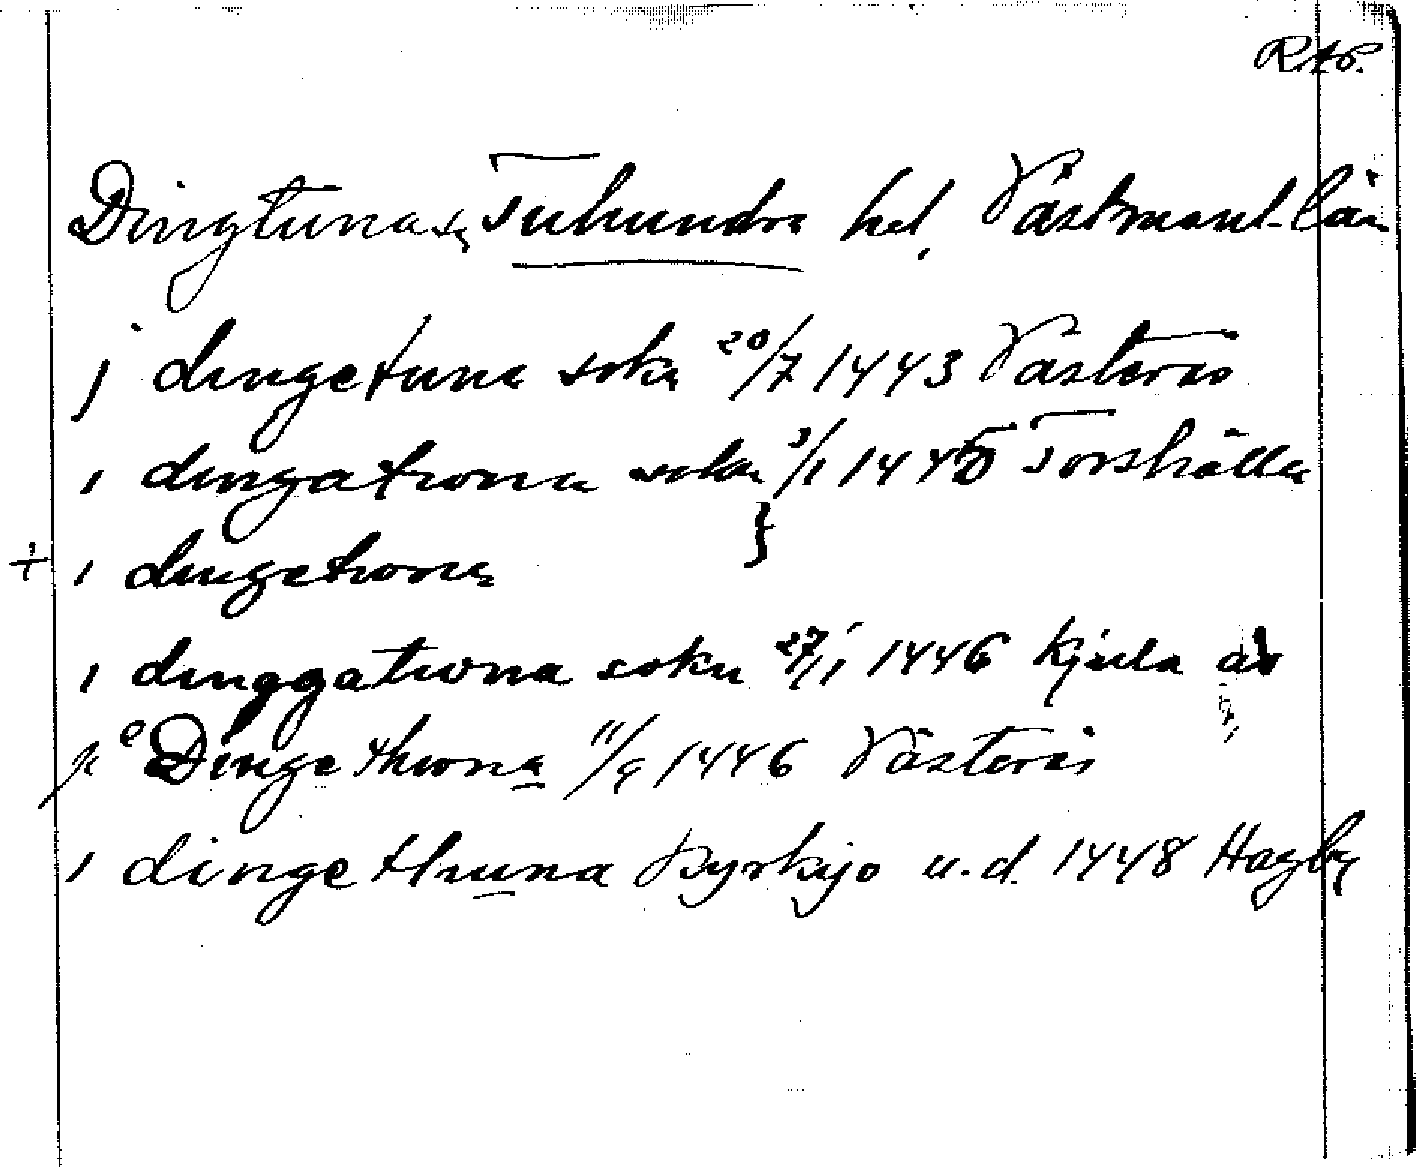 RAP.
Dingtuna sn Tuhundra hd, Västmanl. län
j dingetuna sokn 20/7 1443 Västerås
i dingatwna sokn 3/1 1445 Torshälla
+ i dingetwna }
i dinggatwna sokn 27/1 1446 Kjula ås
pe Dingethwna 11/9 1446 Västerås
i dingethuna kyrkyo u.d. 1448 Hagby